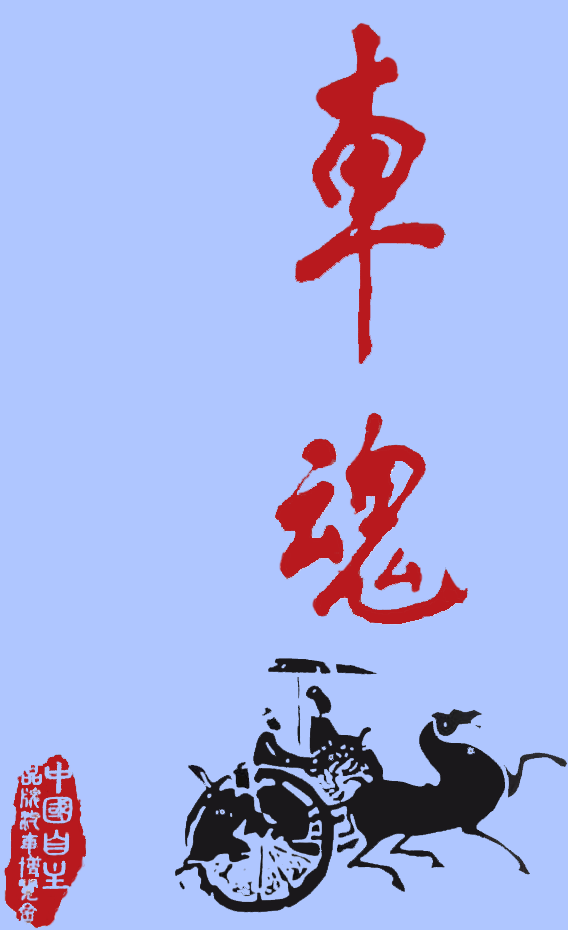 車魂
中國自主
品牌汽車博覽會